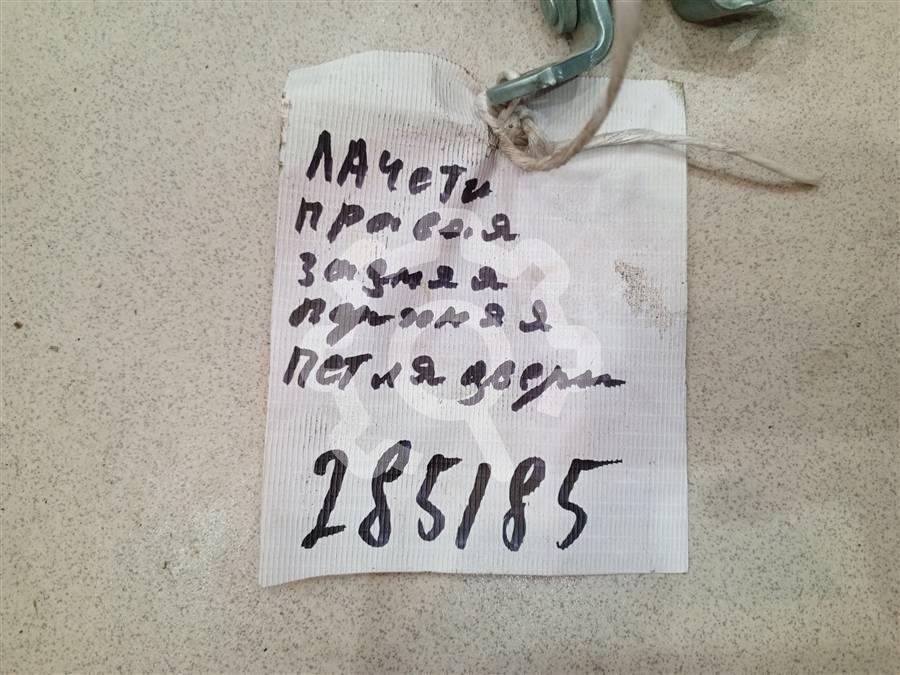 ЛАЧетИ
правая
задняя
нижняя
петля двери
285185